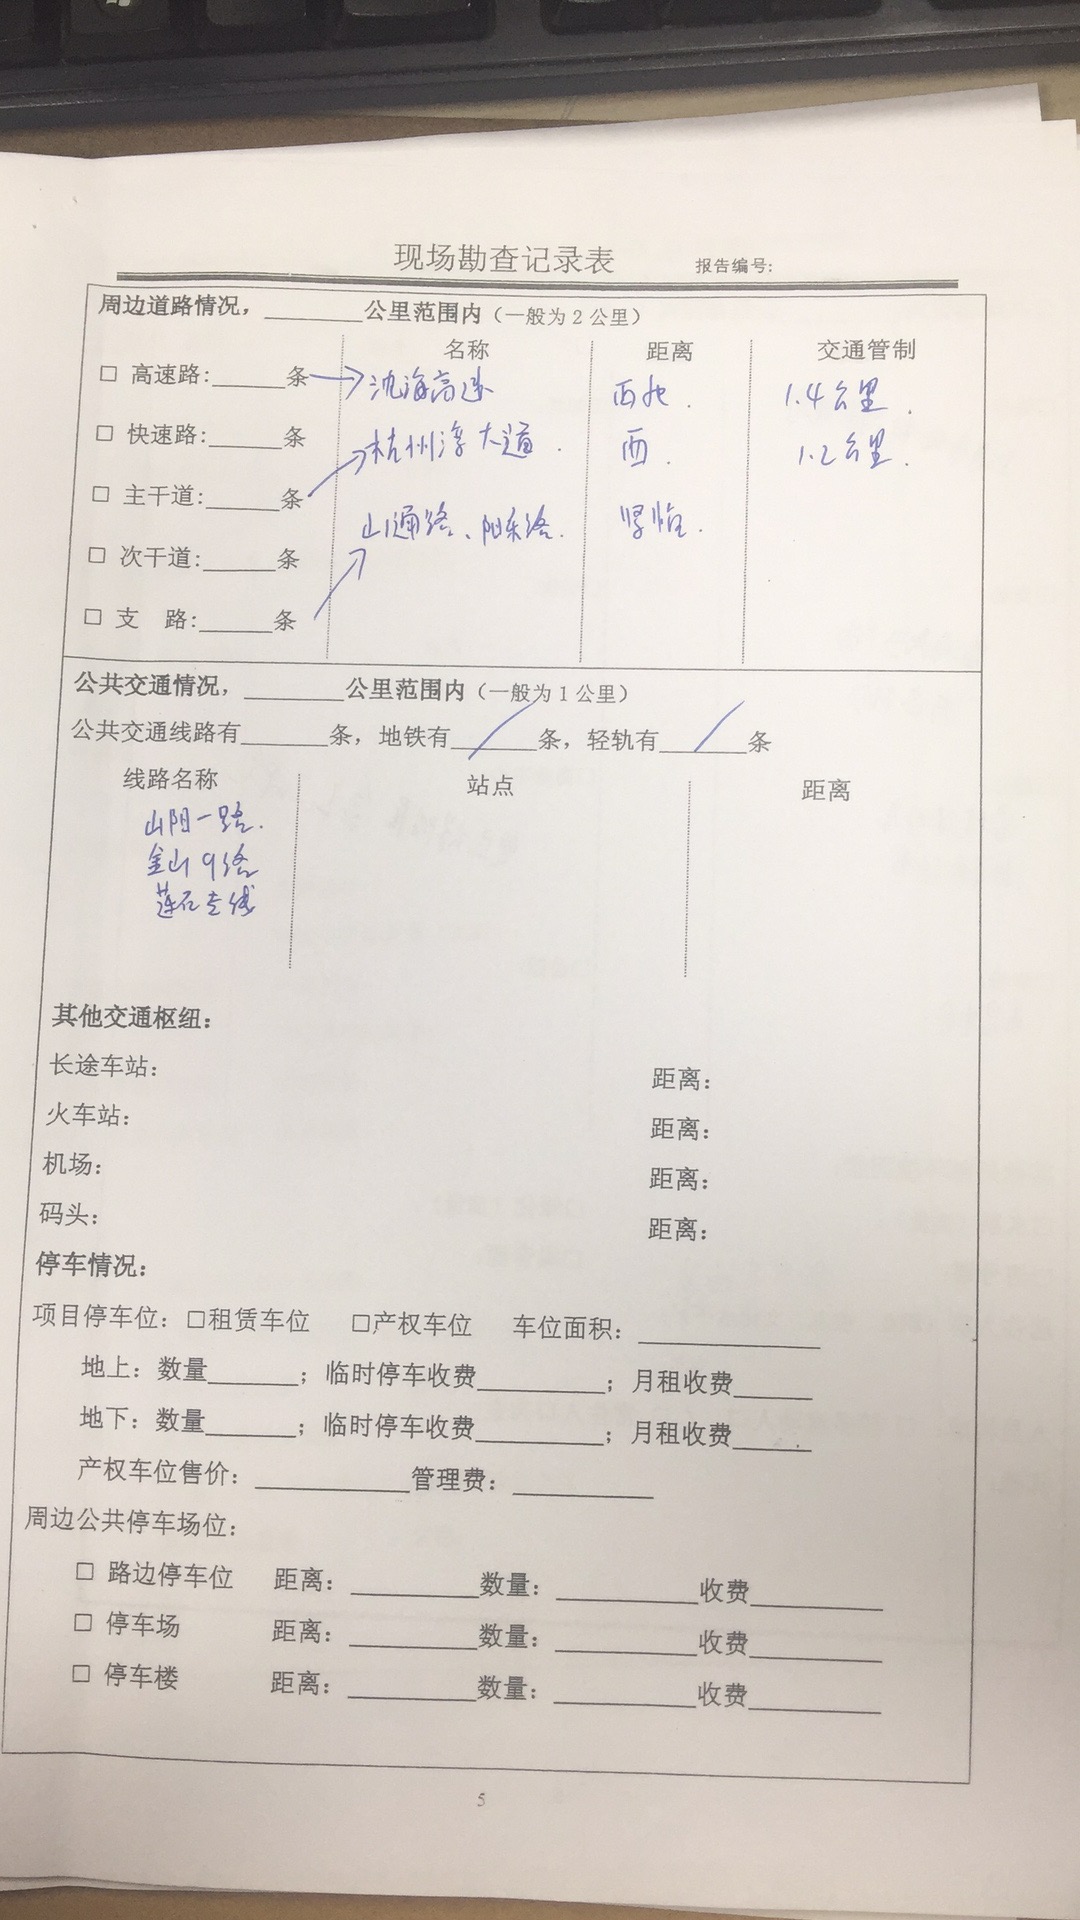 现场勘查记录表 报告编号:
周边道路情况，________公里范围内（一般为2公里）
名称 距离 交通管制
□ 高速路:______条 沈海高速 西北. 1.4公里.
□ 快速路:______条
杭州湾大道. 西. 1.2公里.
□ 主干道:______条
山通路、阳乐路. 紧临.
□ 次干道:______条
□ 支 路:______条
公共交通情况，________公里范围内（一般为1公里）
公共交通线路有_______条，地铁有___/___条，轻轨有___/___条
线路名称 站点 距离
山阳一路.
金山9路
莲石专线
其他交通枢纽：
长途车站： 距离：
火车站： 距离：
机场： 距离：
码头： 距离：
停车情况：
项目停车位：□租赁车位 □产权车位 车位面积：______________
地上：数量_______；临时停车收费__________；月租收费______
地下：数量_______；临时停车收费__________；月租收费______
产权车位售价：____________管理费：___________
周边公共停车场位：
□ 路边停车位 距离：__________数量：___________收费__________
□ 停车场 距离：__________数量：___________收费__________
□ 停车楼 距离：__________数量：___________收费__________
5